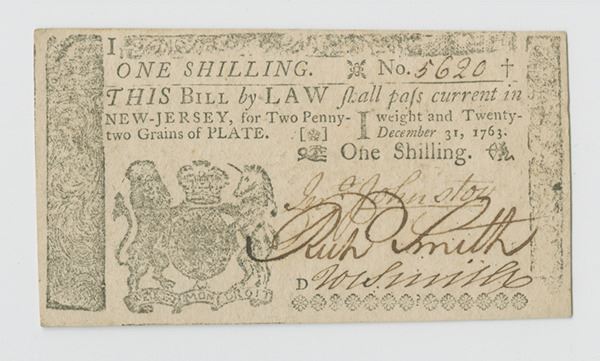 I
ONE SHILLING. No. 5620 †
THIS BILL by LAW ſhall paſs current in
NEW-JERSEY, for Two Penny- I weight and Twenty-
two Grains of PLATE. [*] December 31, 1763.
One Shilling.
Jnº Johnston
Rich Smith
D W Smith
DIEU ET MON DROIT